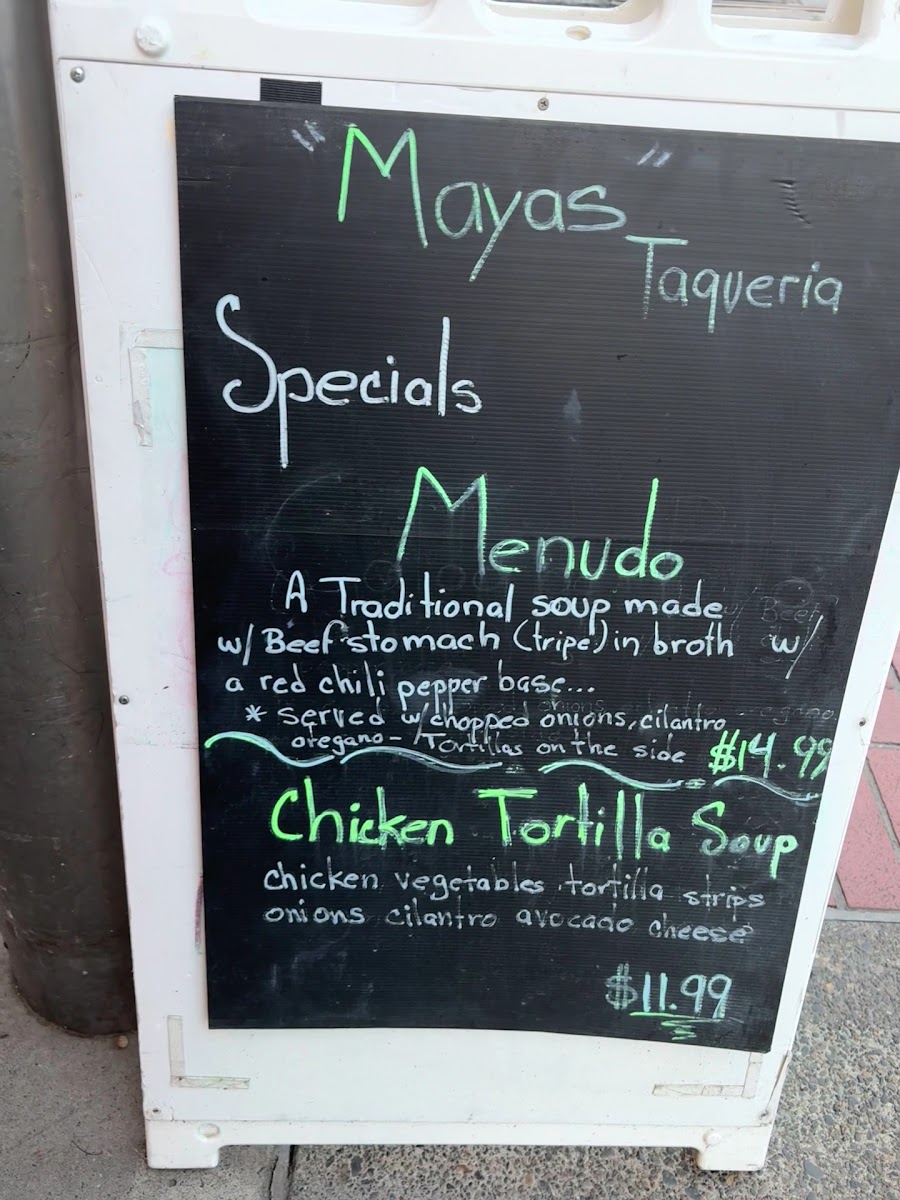 "Mayas"
Taqueria
Specials
Menudo
A Traditional soup made
w/ Beef stomach (tripe) in broth w/
a red chili pepper base...
* served w/chopped onions, cilantro
oregano - Tortillas on the side $14.99
Chicken Tortilla Soup
chicken vegetables tortilla strips
onions cilantro avocado cheese
$11.99